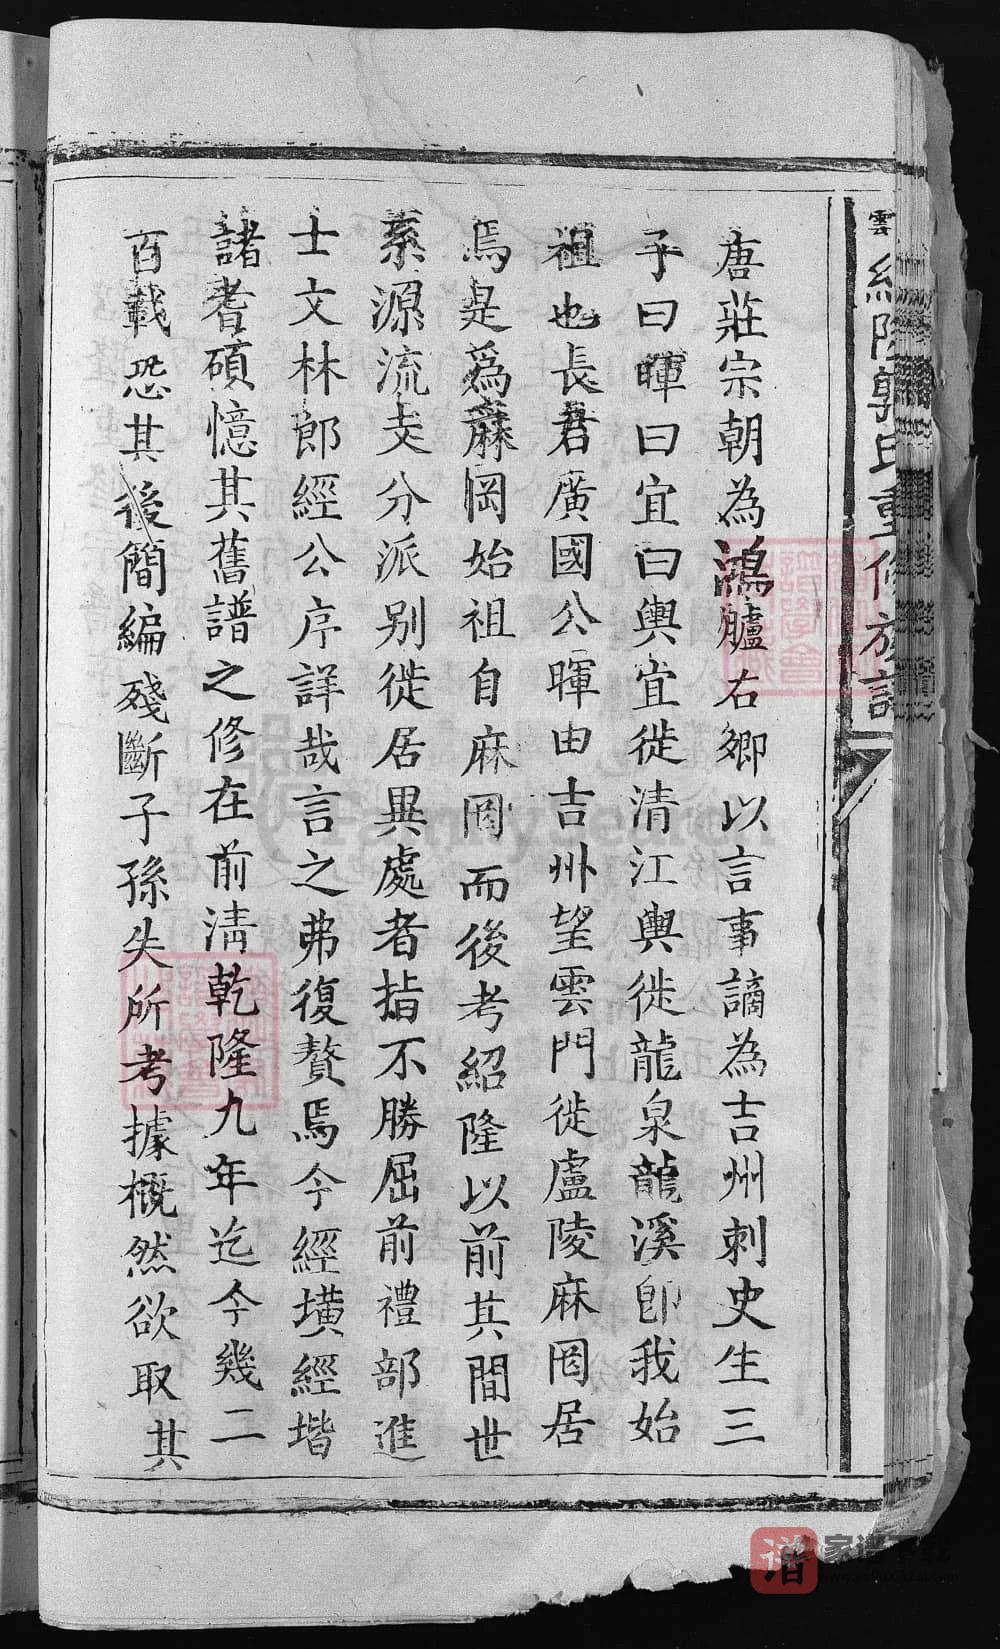 雲
紹隆郭氏重修族譜
唐莊宗朝為鴻臚右卿以言事謫為吉州刺史生三
子曰暉曰宜曰輿宜徙清江輿徙龍泉龍溪卽我始
祖也長君廣國公暉由吉州望雲門徙盧陵麻岡居
焉是爲麻岡始祖自麻岡而後考紹隆以前其間世
系源流支分派別徙居異處者指不勝屈前禮部進
士文林郎經公序詳哉言之弗復贅焉今經墴經堦
諸耆碩憶其舊譜之修在前清乾隆九年迄今幾二
百載恐其後簡編殘斷子孫失所考據概然欲取其
FamilySearch
譜
家谱下载